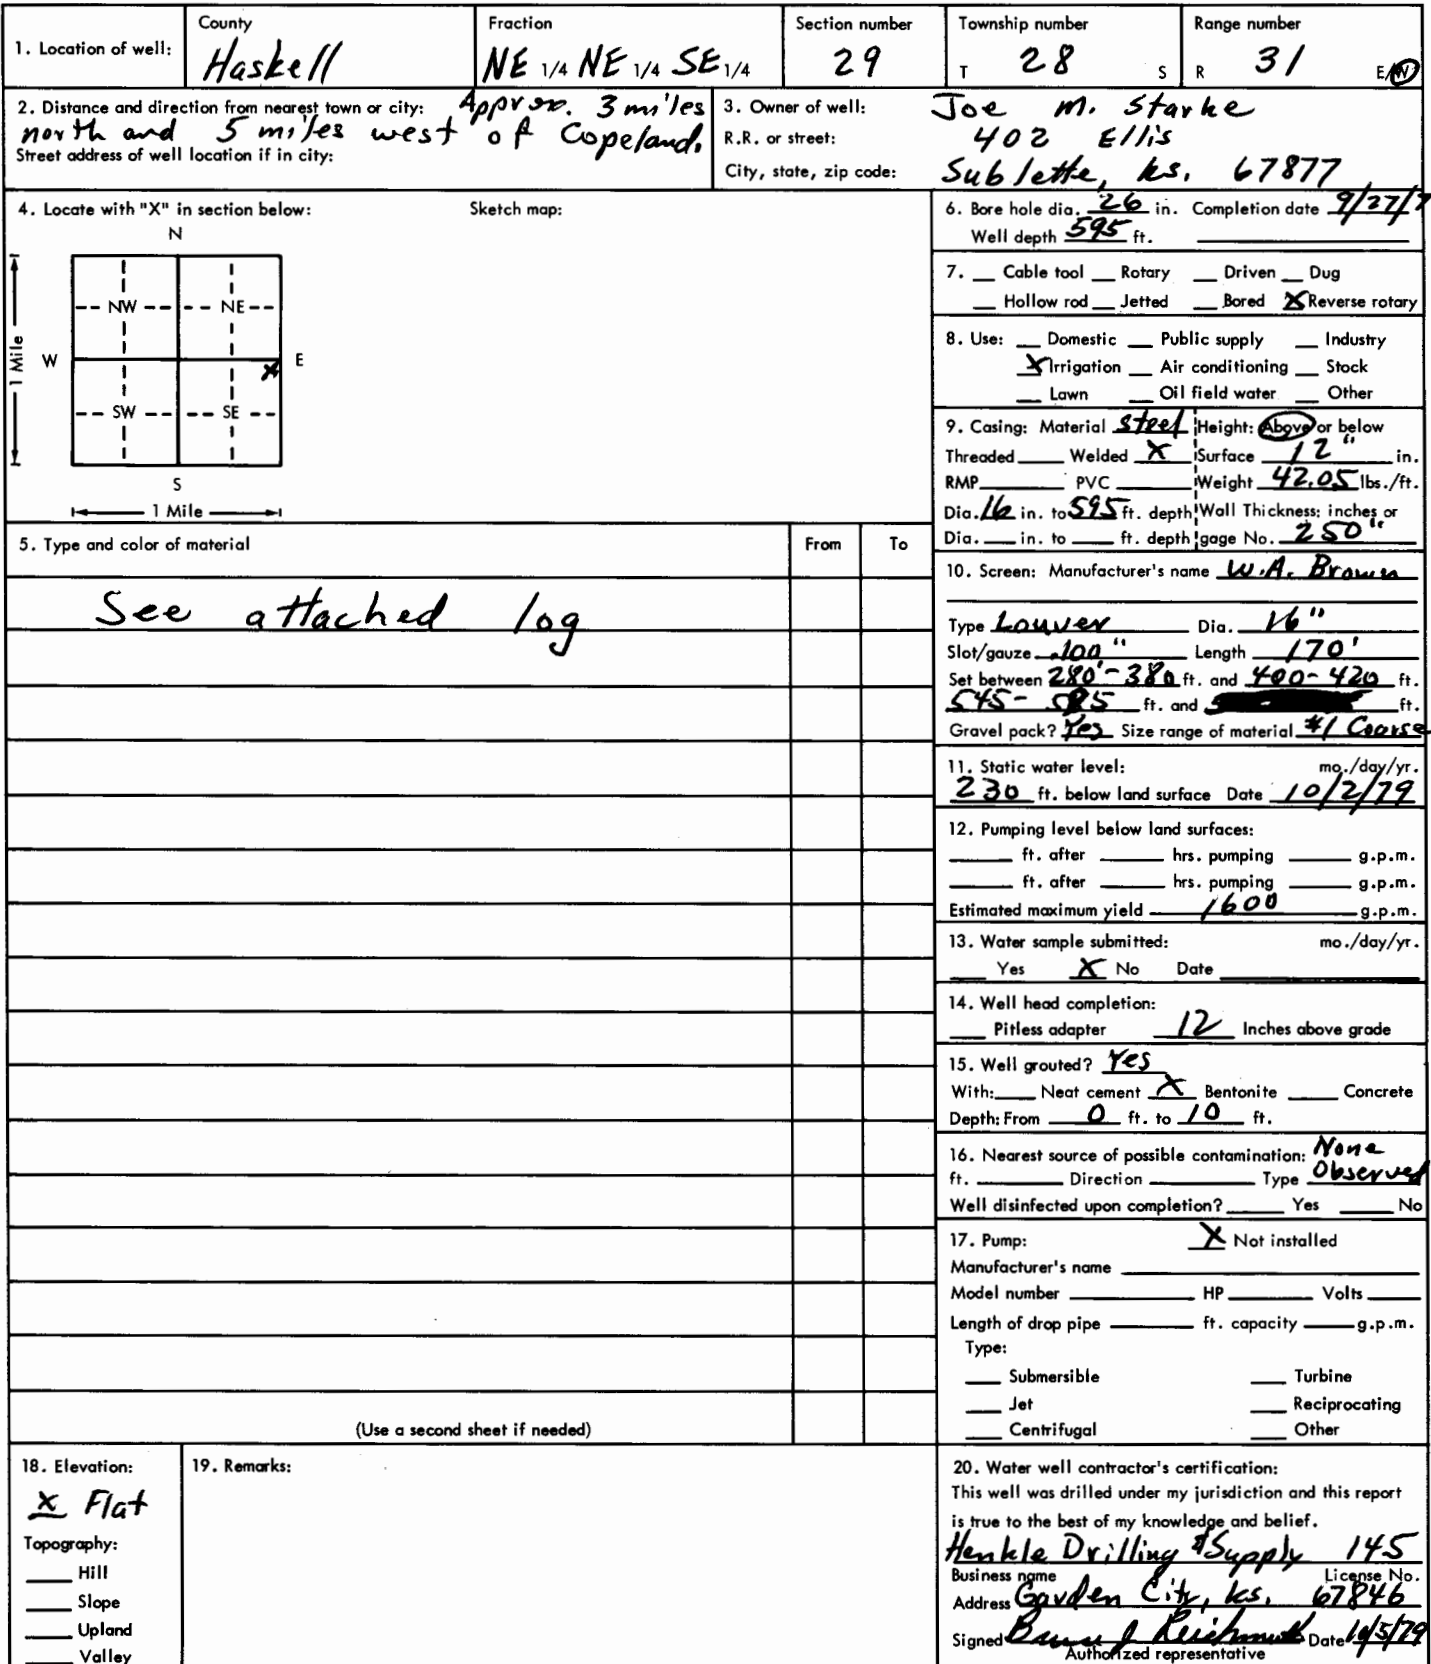 1. Location of well: County Haskell Fraction NE 1/4 NE 1/4 SE 1/4 Section number 29 Township number T 28 S Range number R 31 E/W
2. Distance and direction from nearest town or city: Approx. 3 miles
north and 5 miles west of Copeland.
Street address of well location if in city:
3. Owner of well: Joe M. Starke
R.R. or street: 402 Ellis
City, state, zip code: Sublette, ks. 67877
4. Locate with "X" in section below: Sketch map:
N
NW NE
W X E
1 Mile
SW SE
S
1 Mile
5. Type and color of material From To
See attached log
(Use a second sheet if needed)
6. Bore hole dia. 26 in. Completion date 9/27/7
Well depth 595 ft.
7. Cable tool Rotary Driven Dug
Hollow rod Jetted Bored X Reverse rotary
8. Use: Domestic Public supply Industry
X Irrigation Air conditioning Stock
Lawn Oil field water Other
9. Casing: Material steel Height: Above or below
Threaded Welded X Surface 12" in.
RMP PVC Weight 42.05 lbs./ft.
Dia. 16 in. to 595 ft. depth Wall Thickness: inches or
Dia. in. to ft. depth gage No. 250"
10. Screen: Manufacturer's name W.A. Brown
Type Louver Dia. 16"
Slot/gauze .100" Length 170'
Set between 280'-380 ft. and 400-420 ft.
545- 595 ft. and ft.
Gravel pack? Yes Size range of material #1 Coarse
11. Static water level: mo./day/yr.
230 ft. below land surface Date 10/2/79
12. Pumping level below land surfaces:
ft. after hrs. pumping g.p.m.
ft. after hrs. pumping g.p.m.
Estimated maximum yield 1600 g.p.m.
13. Water sample submitted: mo./day/yr.
Yes X No Date
14. Well head completion:
Pitless adapter 12 Inches above grade
15. Well grouted? Yes
With: Neat cement X Bentonite Concrete
Depth: From 0 ft. to 10 ft.
16. Nearest source of possible contamination: None
ft. Direction Type Observed
Well disinfected upon completion? Yes No
17. Pump: X Not installed
Manufacturer's name
Model number HP Volts
Length of drop pipe ft. capacity g.p.m.
Type:
Submersible Turbine
Jet Reciprocating
Centrifugal Other
18. Elevation:
X Flat
Topography:
Hill
Slope
Upland
Valley
19. Remarks:
20. Water well contractor's certification:
This well was drilled under my jurisdiction and this report
is true to the best of my knowledge and belief.
Henkle Drilling & Supply 145
Business name License No.
Address Garden City, ks. 67846
Signed J Reichmuth Date 10/5/79
Authorized representative